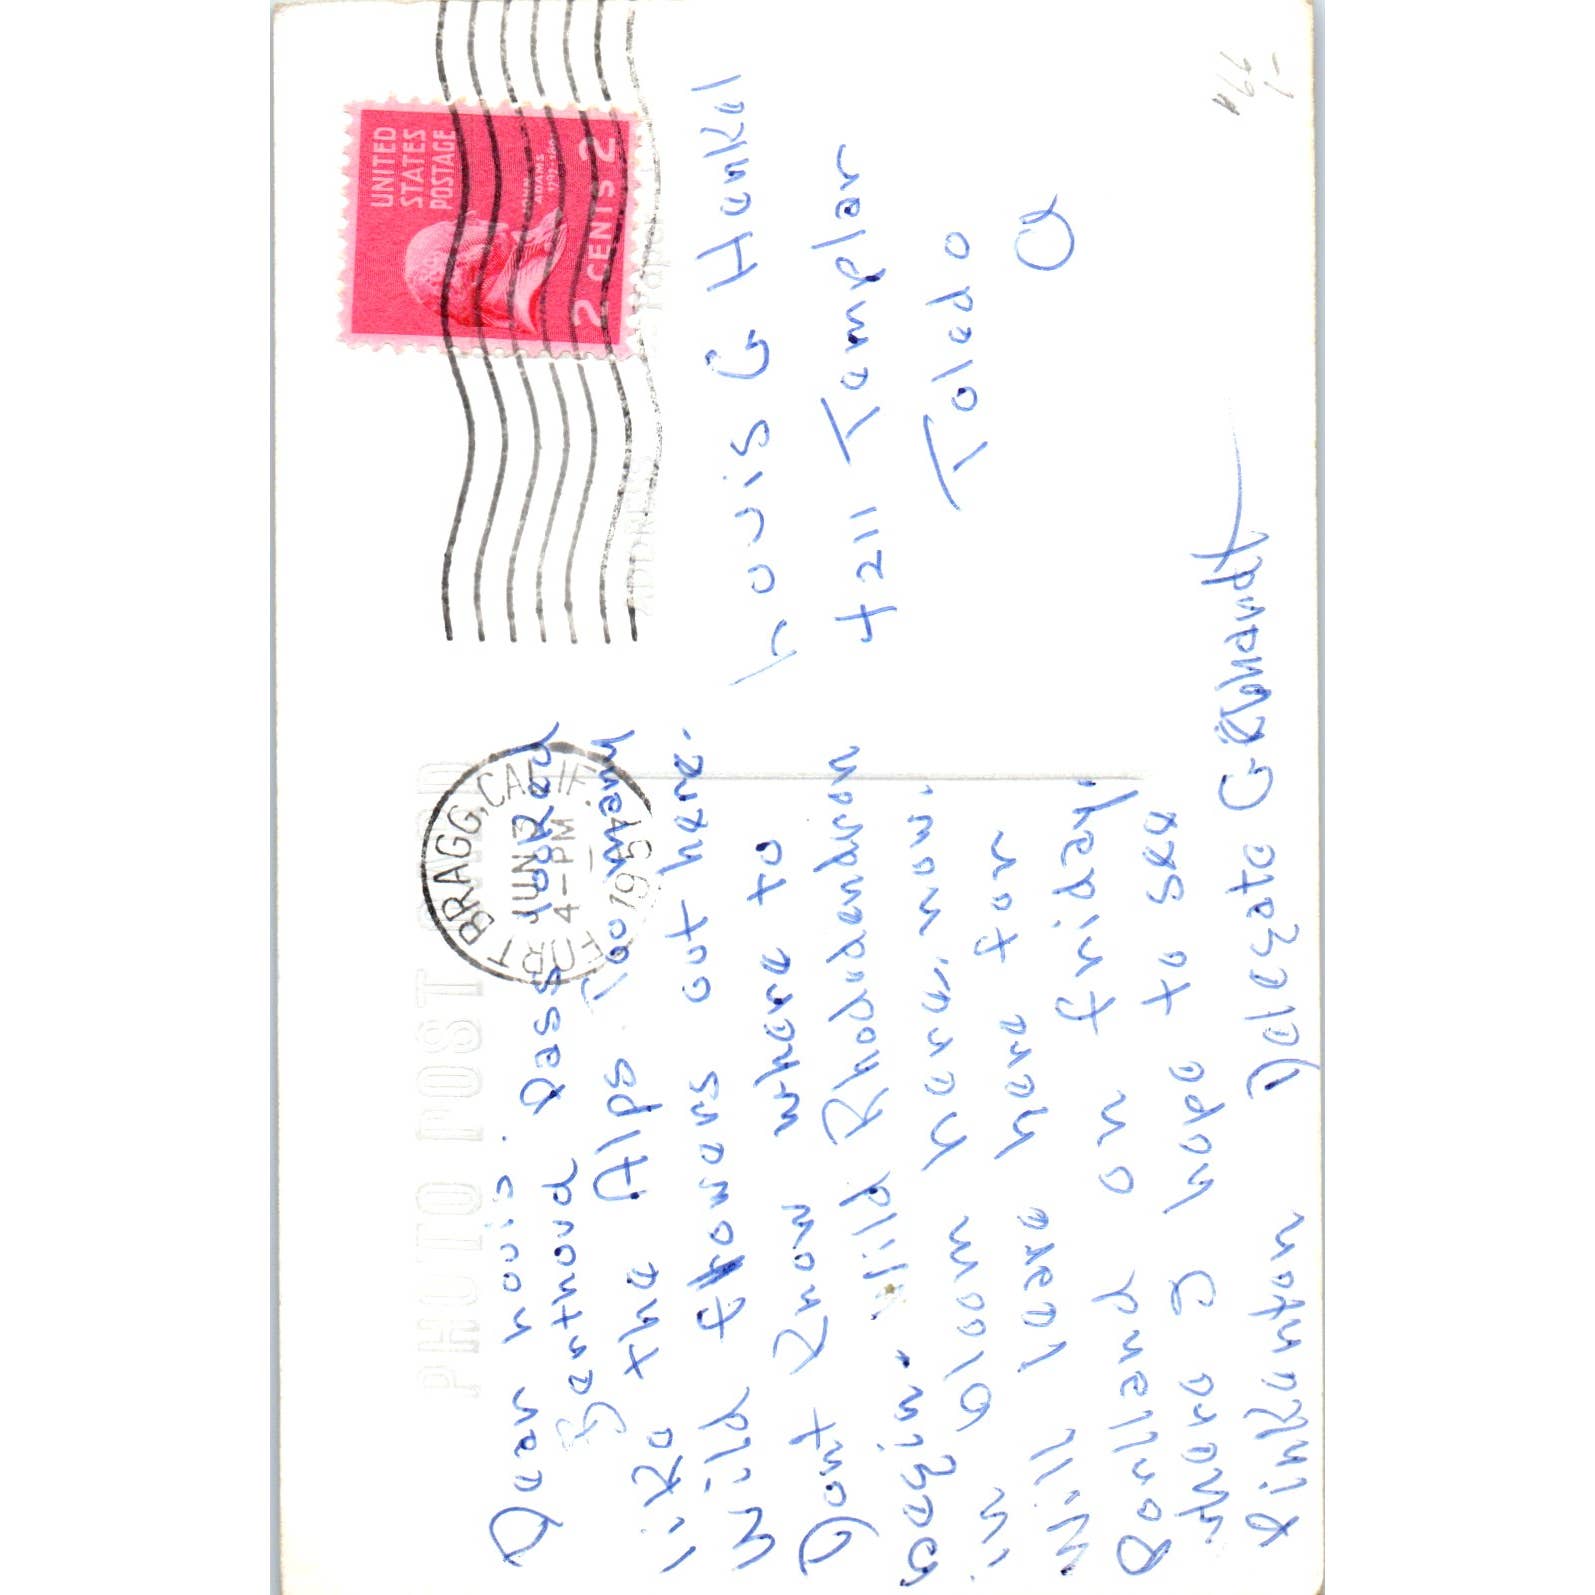 PHOTO POST CARD
FORT BRAGG, CALIF
JUN
4-PM
195
UNITED
STATES
POSTAGE
JOHN
ADAMS
2 CENTS 2
ADDRESS
Dear Louis.
Berthoud Pass looked
like the Alps. Too many
wild flowers out here.
Dont Know where to
begin. Wild Rhododendron
in bloom here, now.
Will leave here for
on Friday.
where I hope to see
Pinkerton
Louis G Henkel
4211 Templar
Toledo
O